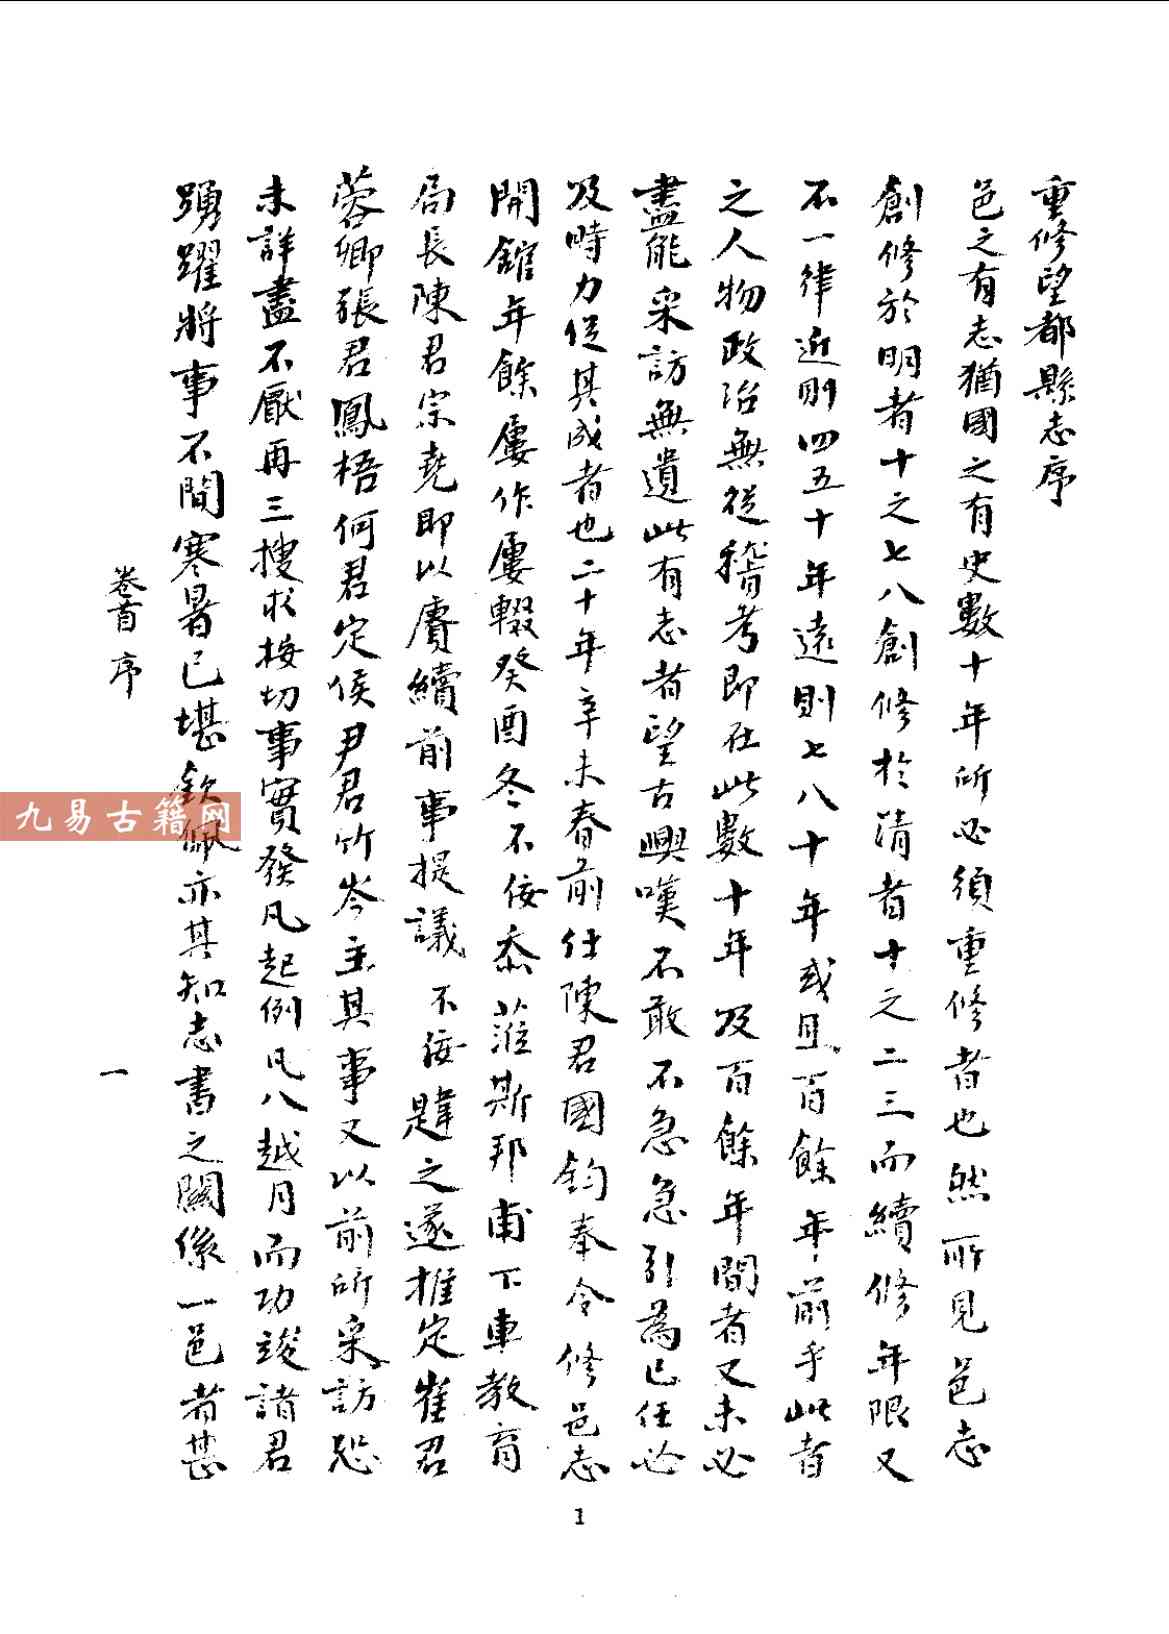 重修望都縣志序
邑之有志猶國之有史數十年所必須重修者也然所見邑志
創修於明者十之七八創修於清者十之二三而續修年限又
不一律近則四五十年遠則七八十年或且百餘年前乎此者
之人物政治無從稽考即在此數十年及百餘年間者又未必
盡能采訪無遺此有志者望古興嘆不敢不急急引為己任必
及時力促其成者也二十年辛未春前任陳君國鈞奉令修邑志
開館年餘屢作屢輟癸酉冬不佞忝蒞斯邦甫下車教育
局長陳君宗堯即以賡續前事提議不佞韙之遂推定崔君
蓉卿張君鳳梧何君定侯尹君竹岑主其事又以前所采訪恐
未詳盡不厭再三搜求按切事實發凡起例凡八越月而功竣諸君
踴躍將事不間寒暑已堪欽佩亦其知志書之關係一邑者甚
卷首 序
一
九易古籍网
1